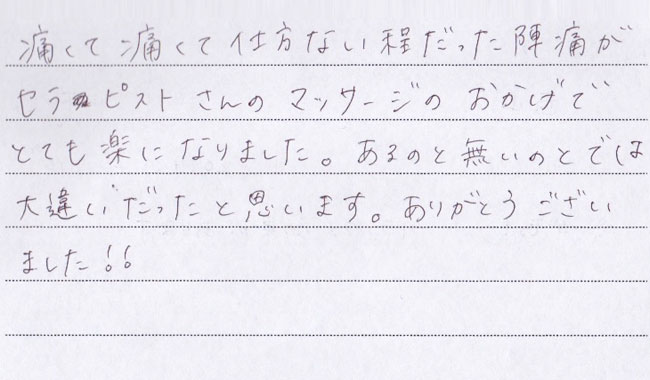 痛くて痛くて仕方ない程だった陣痛が
セラピストさんのマッサージのおかげで
とても楽になりました。あるのと無いのとでは
大違いだったと思います。ありがとうござい
ました!!